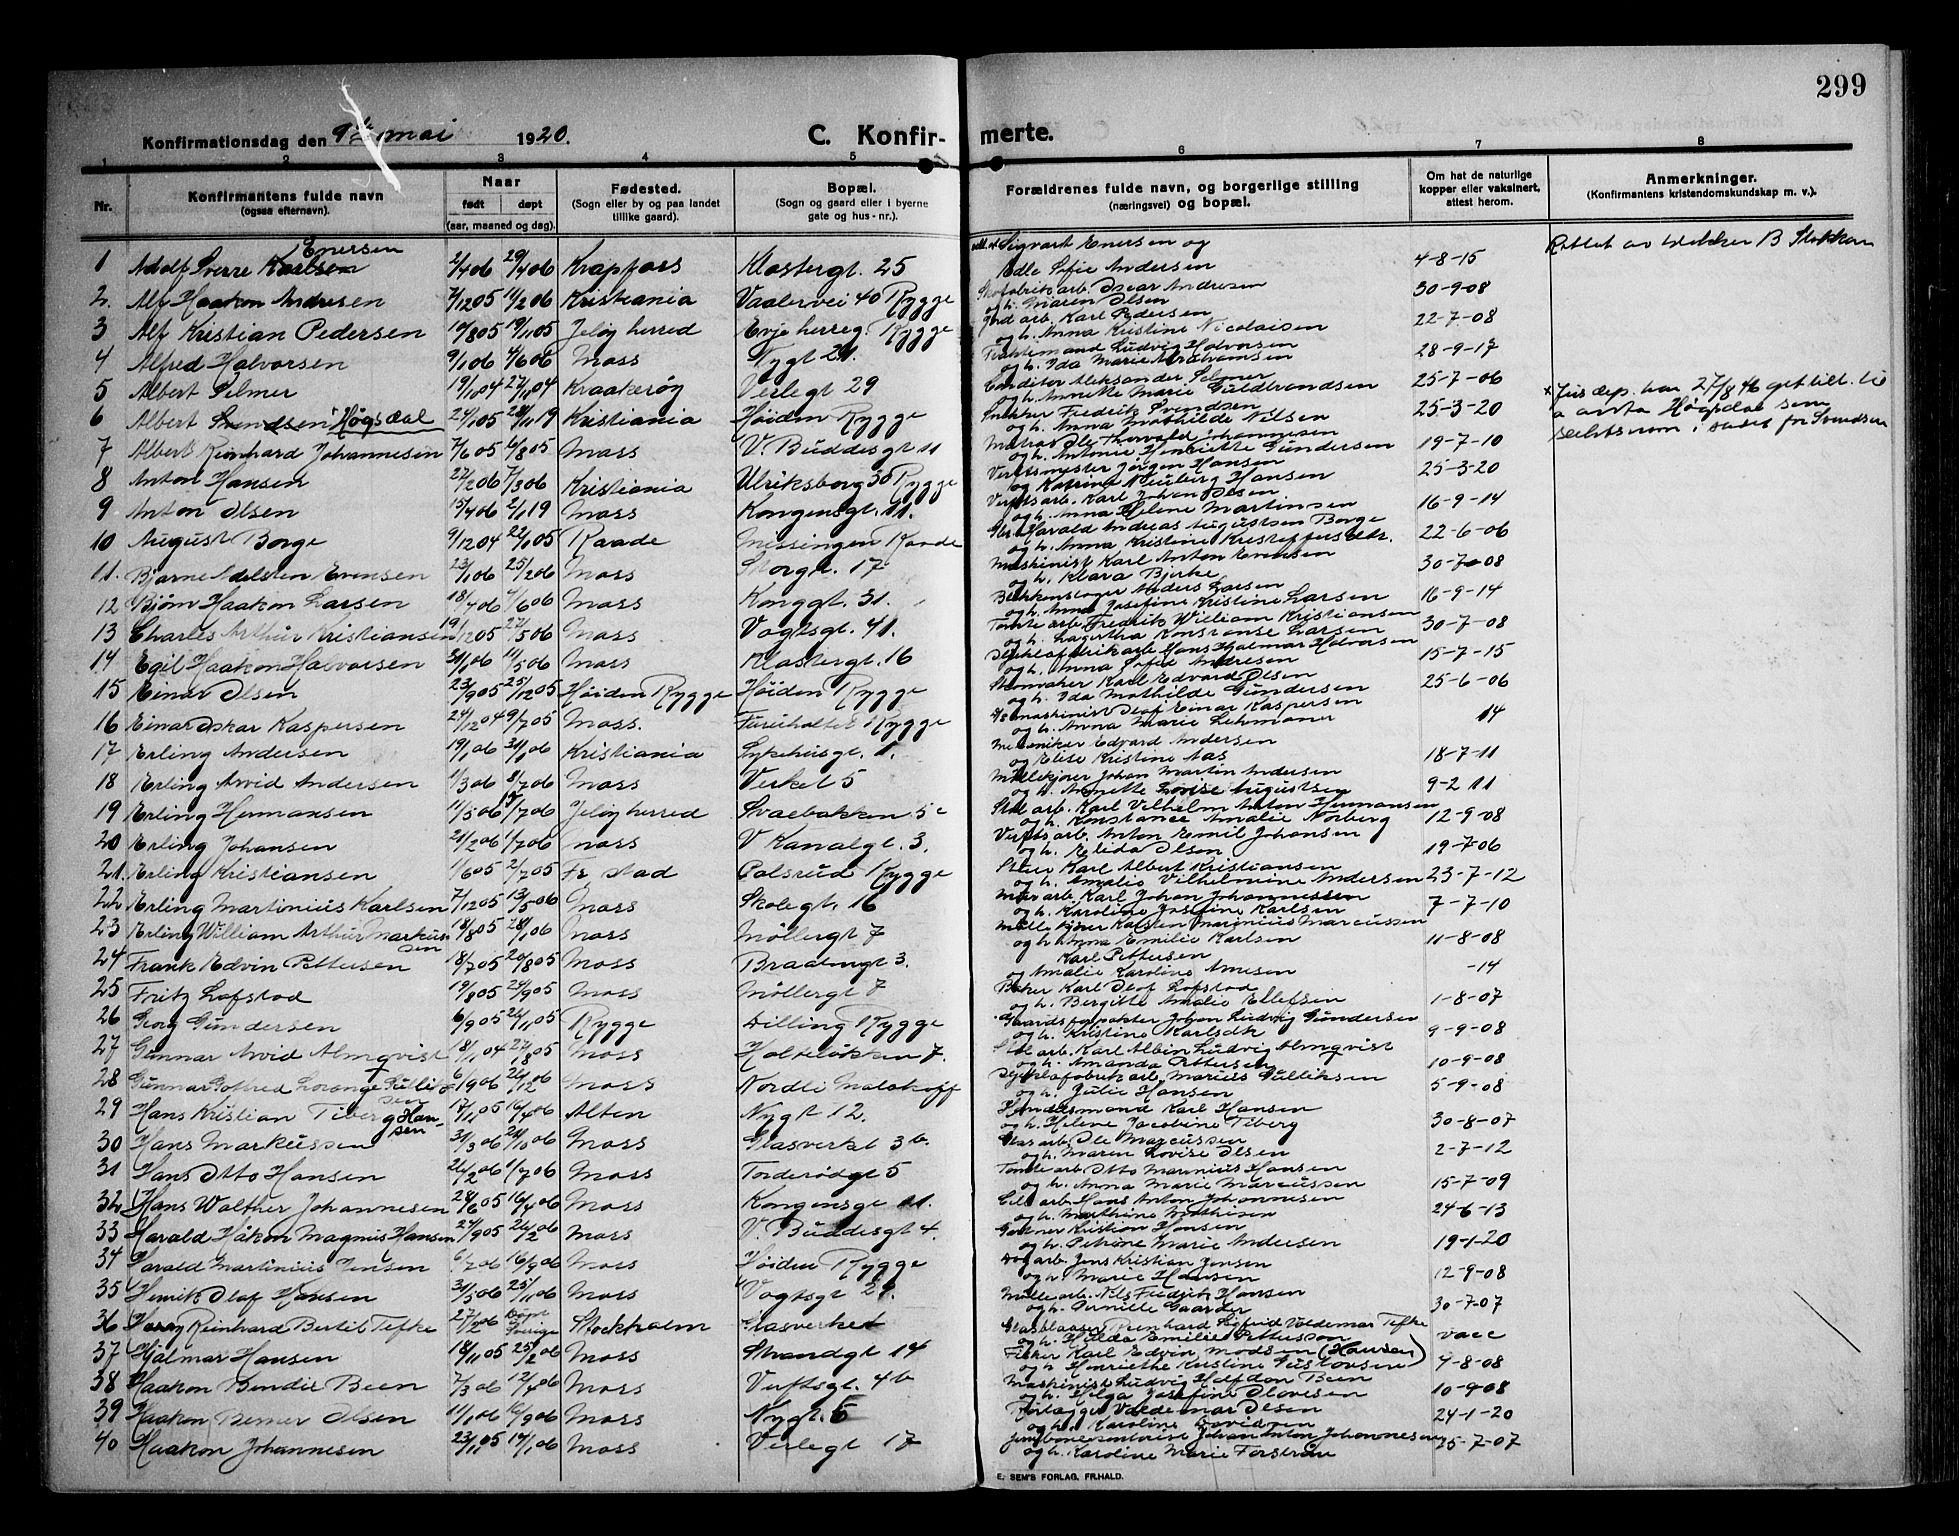 299
Konfirmationsdag den 9de mai 1920.
C. Konfirmerte.
1 2 3 4 5 6 7 8
Nr. Konfirmantens fulde navn (ogsaa efternavn). Naar født døpt (aar, maaned og dag). Fødested. (Sogn eller by og paa landet tillike gaard). Bopæl. (Sogn og gaard eller i byerne gate og hus-nr.). Forældrenes fulde navn, og borgerlige stilling (næringsvei) og bopæl. Om hat de naturlige kopper eller vaksinert, attest herom. Anmerkninger. (Konfirmantens kristendomskundskap m. v.).
1 Adolf Sverre Karlsen Enersen 2/4 06 29/4 06 Krapfoss Klostergt. 25 Sigvart Enersen og Adle Sofie Andersen 4-8-15
2. Alf Haakon Andresen 7/12 05 11/2 06 Kristiania Vaalervei 40 Rygge Skofabrikarb. Oscar Andresen og h. Maren Olsen 30-9-08
3 Alf Kristian Pedersen 10/8 05 19/11 05 Jeløy herred Evje herreg. Rygge Jord arb. Karl Pedersen og h. Anna Kristine Nicolaisen 22-7-08
4 Alfred Halvorsen 9/1 06 4/6 06 Moss Nygt 21. Ludvig Halvorsen og h. Ida Marie Abrahamsen 28-9-17
5 Albert Selmer 19/1 04 27/11 04 Kraakerøy Verlegt 29 Conditor Aleksander Selmer og h. Annette Marie Guldbrandsen 25-7-06
6 Albert Svendsen Høgsdal 24/1 05 Kristiania Høiden Rygge Snekker Fredrik Svendsen og h. Anna Mathilde Nilsen 25-3-20
7 Albert Reinhard Johannesen 7/6 05 6/8 05 Moss V. Buddesgt 11 Matros Ole Thorvald Johannesen og h. Antonie Henriette Gundersen 19-7-10
8 Anton Hansen 22/2 06 7/3 06 Kristiania Ulriksborg 30 Rygge Verftsmester Jørgen Hansen og Katrine Neuberg Hansen 25-3-20
9 Anton Olsen 15/4 06 2/1 19 Moss Kongensgt. 11. Verftsarb. Karl Johan Olsen og h. Anna Helene Martinsen 16-9-14
10 August Borge 9/12 04 22/1 05 Raade Missingen Raade Harald Andreas Augustsen Borge og h. Anna Kristine Kristoffersdtr. 22-6-06
11. Bjarne Adelsten Evensen 23/1 06 25/2 06 Moss Storgt. 17 Maskinist Karl Anton Evensen og h. Klara Bjerke 30-7-08
12 Bjørn Haakon Larsen 18/4 06 4/6 06 Moss Konggt. 31. Blikkenslager Anders Larsen og h. Anna Josefine Kristine Larsen 16-9-14
13 Charles Arthur Kristiansen 19/12 05 27/5 06 Moss Vogtsgt. 41. Tomtearb. Fredrik William Kristiansen og h. Lagertha Konstanse Larsen 30-7-08
14. Egil Haakon Halvorsen 31/1 06 11/5 06 Moss Klostergt. 16 Hans Hjalmar Halvorsen og h. Anna Sofie Andresen 15-7-15
15 Einar Olsen 23/9 05 25/12 05 Høiden Rygge Høiden Rygge Skomaker Karl Edvard Olsen og h. Ida Mathilde Gundersen 25-6-06
16 Einar Oskar Kaspersen 24/12 04 9/7 05 Moss. Furuholtet Rygge maskinist Olaf Einar Kaspersen og h. Anna Marie Lehmann 14
17 Erling Andersen 19/1 06 31/1 06 Kristiania Sykehusgt. 1. Mekaniker Edvard Andersen og Elise Kristine Aas 18-7-11
18 Erling Arvid Andersen 1/3 06 8/7 06 Moss Verket 5 Møllekjører Johan Martin Andersen og h. Annette Lovise Augustsen 9-2 11
19 Erling Hermansen 11/5 06 15/7 06 Jeløy herred Svaebakken 5c Karl Vilhelm Anton Hermansen og h. Konstance Amalie Norberg 12-9-08
20 Erling Johansen 21/2 06 1/7 06 Moss V Kanalgt. 3. Verftsarb. Anton Emil Johansen og h. Elida Olsen 19-7-06
21. Erling Kristiansen 1/6 05 2/7 05 Fr stad Carlsrud Rygge Karl Albert Kristiansen og h. Amalie Vilhelmine Andersen 23-7-12
22 Erling Martinius Karlsen 7/12 05 13/5 06 Moss Skolegt. 16 Murarb. Karl Johan Johannessen og h. Karoline Josefine Karlsen 7-7-10
23 Erling William Arthur Markussen 18/8 05 28/1 06 Moss Møllergt 7 Møllekjører Karsten Marinius Marcussen og h. Anna Emilie Karlsen 11-8-08
24 Frank Edvin Pettersen 18/7 05 20/8 05 Moss Bradengt 3. Karl Pettersen og Amalie Karoline Arnesen -14
25 Fritz Lofstad 19/8 05 24/9 05 Moss Møllergt 7 Baker Karl Olaf Lofstad og h. Bergitte Amalie Ellefsen 1-8-07
26 Georg Gundersen 6/9 05 26/11 05 Rygge Dilling Rygge Gaardsforpakter Johan Ludvig Gundersen og h. Kristine Karlsdtr 9-9-08
27 Gunnar Arvid Almqvist 18/11 04 27/8 05 Moss Holteløkken 7. Karl Albin Ludvig Almqvist og h. Amanda Pettersen 10-9-08
28 Gunnar Gotfred Lorange Gulliksen Moss Nordli Malakoff Marius Gulliksen og h. Julie Hansen 5-9-08
29 Hans Kristian Tiberg Hansen 17/11 05 16/4 06 Alten Nygt 12. Handelsmand Karl Hansen og h. Helene Jacobine Tiberg 30-8-07
30 Hans Markussen 31/3 06 21/10 06 Moss Glasverket 3b. Glasarb. Ole Marcussen og h. Maren Lovise Olsen 2-7-12
31 Hans Otto Hansen 26/2 06 1/7 06 Moss Tonderødgt 5 Tomtearb. Otto Marinius Hansen og h. Anna Marie Marcussen 15-7-09
32 Hans Walther Johannesen 28/6 05 16/4 06 Moss Kongensgt 11. Hans Anton Johannesen og h. Marthine Mathisen 24-6-13
33 Harald Håkon Magnus Hansen 24/9 05 26/2 06 Moss V. Buddesgt 4. Gartner Kristian Hansen og h. Petrine Marie Andersen 19-1-20
34 Harald Martinius Jensen 6/7 06 16/9 06 Moss Høiden Rygge Jens Kristian Jensen og h. Marie Hansen 12-9-08
35 Henrik Olaf Hansen 31/5 06 25/11 06 Moss Vogtsgt 29. Møllearb. Nils Fredrik Hansen og h. Pernille Gaarder 30-7-07
36 Harry Reinhard Bertil Tefke 27/2 06 Døpt Sverige Stockholm Glasverket Glasblaaser Reinhard Sigfrid Valdemar Tefke og h. Hulda Emilie Pettersson vacc
37 Hjalmar Hansen 18/11 05 25/2 06 Moss Strandgt 14 Fisker Karl Edvin Madsen (Hansen) og h. Henriethe Kristine Gustavsen 4-8-08
38 Haakon Bendix Been 7/3 06 12/4 06 Moss Verftsgt. 4b Maskinist Ludvig Halfdan Been og h. Helga Josefine Olavesen 10-9-08
39 Haakon Berner Olsen 11/1 06 16/9 06 Moss Nygt. 5 Valdemar Olsen og h. Karoline Davidsen 24-1-20
40 Haakon Johannesen 23/11 05 14/1 06 Moss Verlegt 17 Johan Anton Johannesen og h. Karoline Marie Forstrøm 25-7-07
Rettet av klokker B Stokken
x Jus. dep. har 27/8 46 gitt till. til
å anta Høgsdal som
slektsnavn i stedet for Svendsen
E. SEM'S FORLAG, FR.HALD.